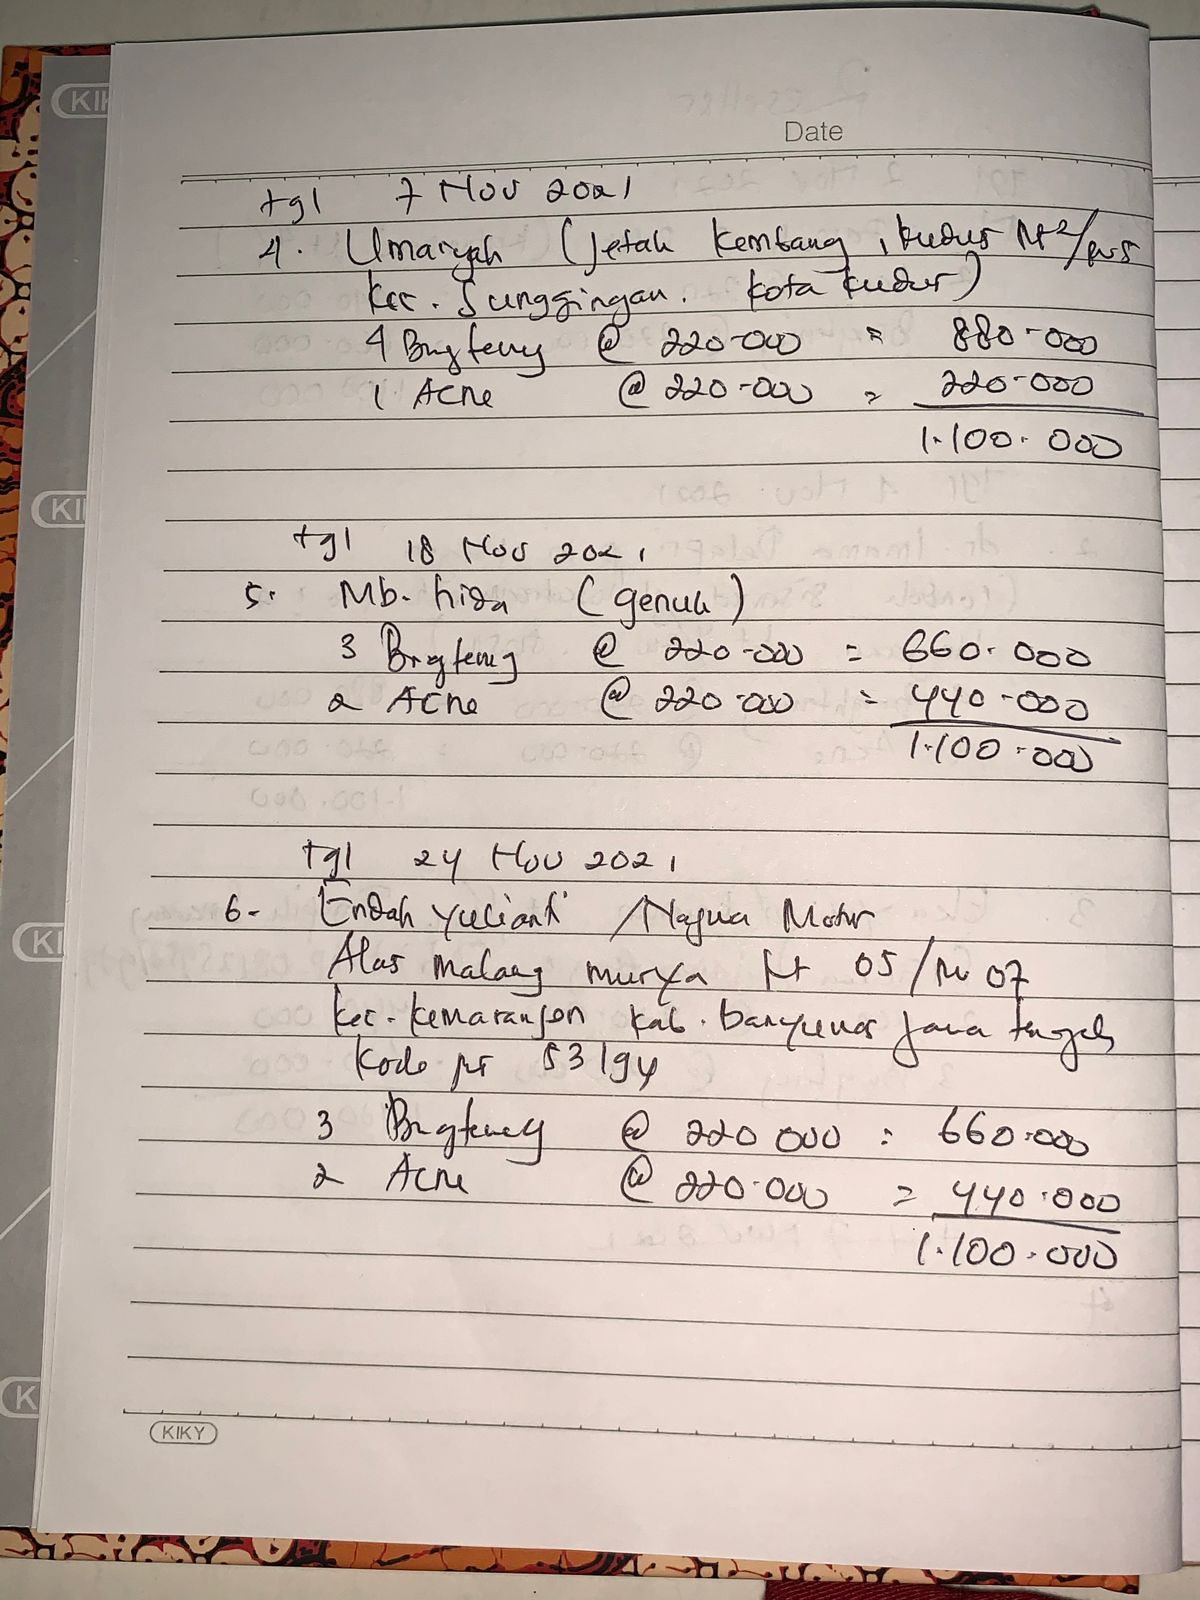 Date
tgl 7 Nov 2021
4. Umaryah (Jetak Kembang, Kudus Rt 2/
Kec. Sunggingan. Kota Kudus)
4 @ 220.000 = 880.000
1 Acne @ 220.000 = 220.000
1.100.000
tgl 18 Nov 2021
5. Mb. hida (genuk)
3 @ 220.000 = 660.000
2 Acne @ 220.000 = 440.000
1.100.000
tgl 24 Nov 2021
6. Endah Yulianti / Motor
Alas malang Rt 05/Rw 07
Kec. Kemaranjen Kab. banyumas Jawa tengah
Kode pos 53194
3 @ 220.000 = 660.000
2 Acne @ 220.000 = 440.000
1.100.000
KIKY